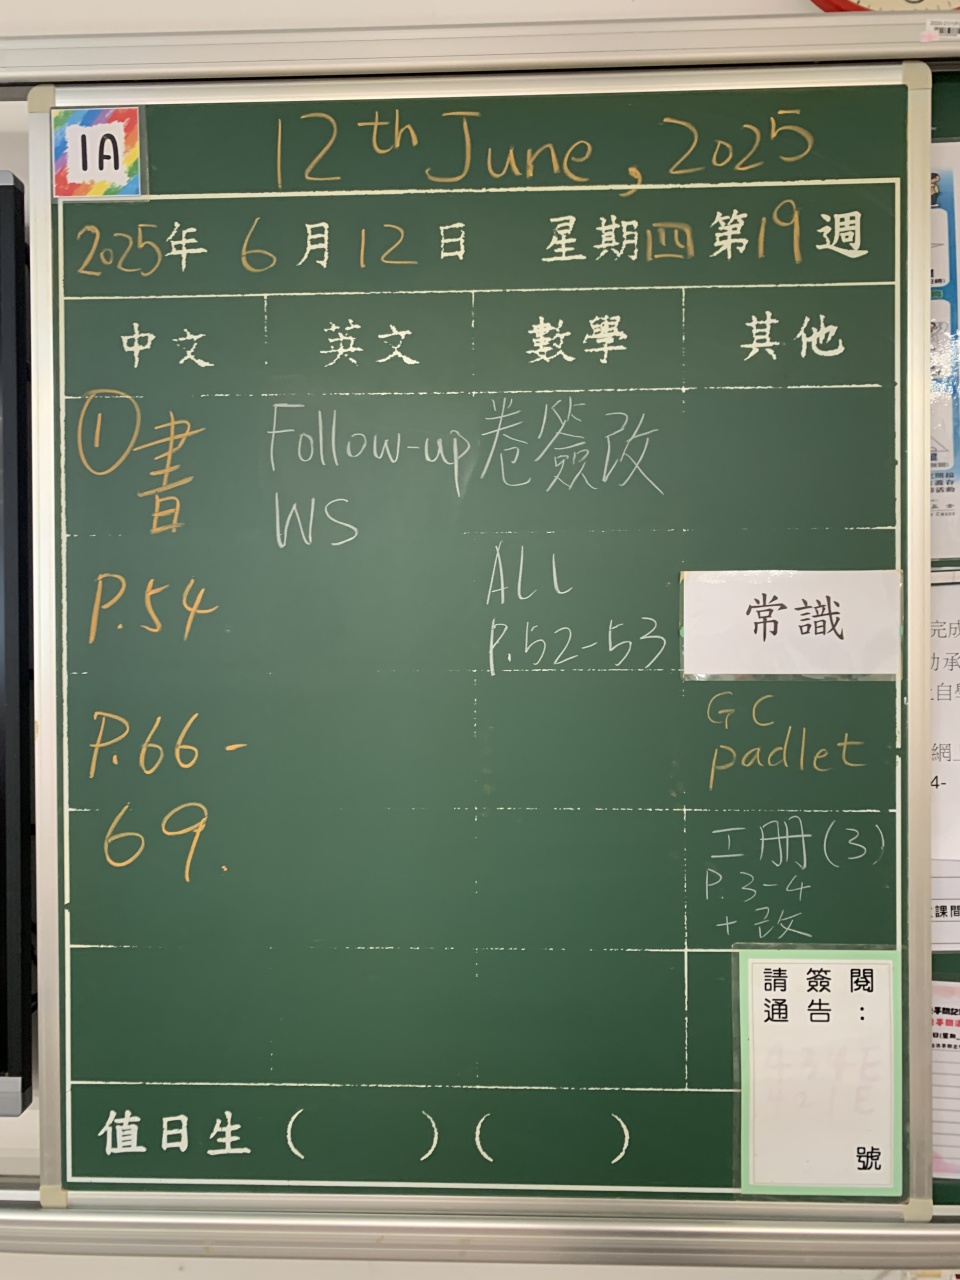 1A
12th June, 2025
2025年 6月12日 星期四 第19週
中文 英文 數學 其他
① 書
P.54
P.66-
69.
Follow-up
WS
卷簽改
ALL
P.52-53
常識
GC
padlet
工册(3)
P.3-4
+改
請簽閱
通告：
號
值日生( )( )